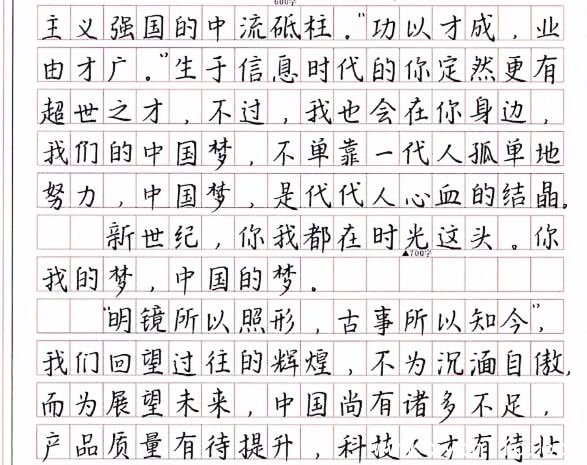 600字
主义强国的中流砥柱."功以才成,业
由才广."生于信息时代的你定然更有
超世之才,不过,我也会在你身边,
我们的中国梦,不单靠一代人孤单地
努力,中国梦,是代代人心血的结晶.
新世纪,你我都在时光这头。你
▲700字
我的梦,中国的梦.
"明镜所以照形,古事所以知今",
我们回望过往的辉煌,不为沉湎自傲,
而为展望未来,中国尚有诸多不足,
产品质量有待提升,科技人才有待